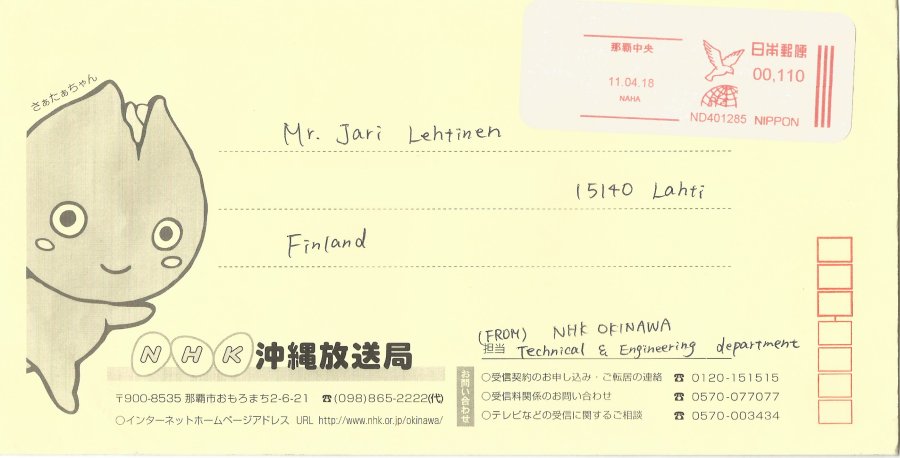 さぁたぁちゃん
那覇中央
11.04.18
NAHA
日本郵便
00,110
ND401285 NIPPON
Mr. Jari Lehtinen
15140 Lahti
Finland
(FROM) NHK OKINAWA
担当 Technical & Engineering department
NHK沖縄放送局
〒900-8535 那覇市おもろまち2-6-21 ☎(098)865-2222(代)
○インターネットホームページアドレス URL http://www.nhk.or.jp/okinawa/
お問い合わせ
○受信契約のお申し込み・ご転居の連絡 ☎ 0120-151515
○受信料関係のお問い合わせ ☎ 0570-077077
○テレビなどの受信に関するご相談 ☎ 0570-003434